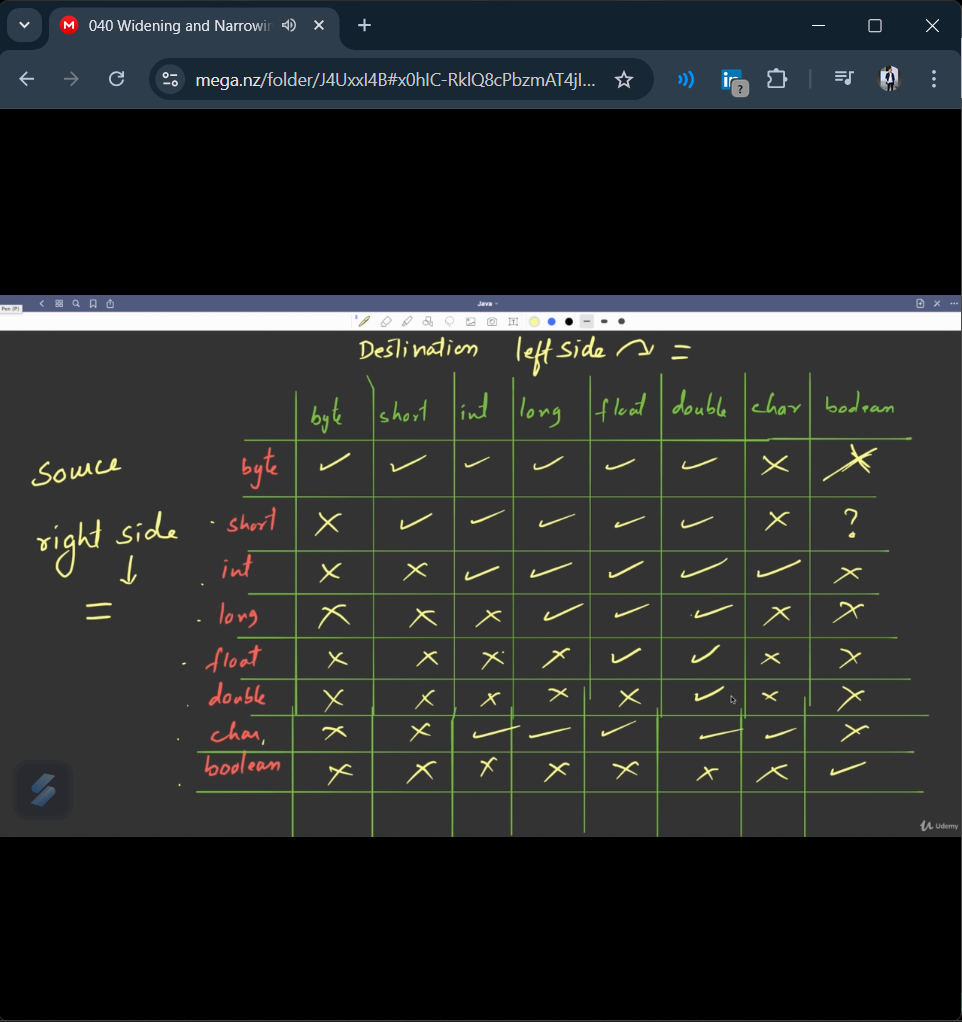 040 Widening and Narrowin
mega.nz/folder/J4UxxI4B#x0hIC-RklQ8cPbzmAT4jI...
?
Pen (P)
Java
Destination left side =
byte short int long float double char boolean
Source
right side
=
byte ✓ ✓ ✓ ✓ ✓ ✓ × ×
short × ✓ ✓ ✓ ✓ ✓ × ?
int × × ✓ ✓ ✓ ✓ ✓ ×
long × × × ✓ ✓ ✓ × ×
float × × × × ✓ ✓ × ×
double × × × × × ✓ × ×
char, × × ✓ ✓ ✓ ✓ ✓ ×
boolean × × × × × × × ✓
Udemy